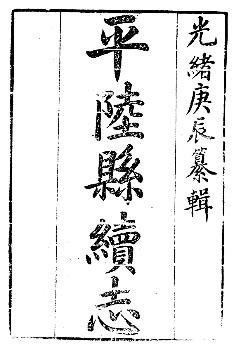 光緒庚辰纂輯
平陸縣續志